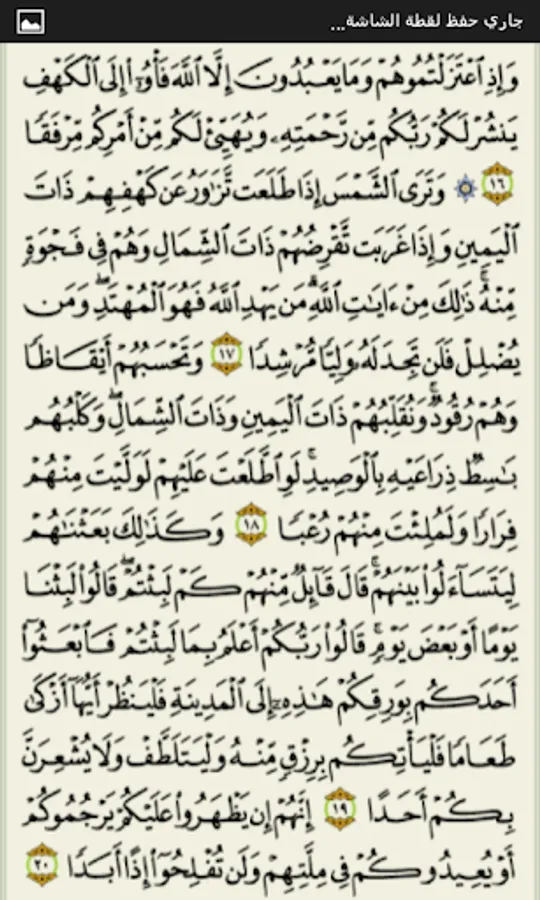 جاري حفظ لقطة الشاشة...
وَإِذِ ٱعْتَزَلْتُمُوهُمْ وَمَا يَعْبُدُونَ إِلَّا ٱللَّهَ فَأْوُۥٓا۟ إِلَى ٱلْكَهْفِ
يَنشُرْ لَكُمْ رَبُّكُم مِّن رَّحْمَتِهِۦ وَيُهَيِّئْ لَكُم مِّنْ أَمْرِكُم مِّرْفَقًا
١٦ ۞ وَتَرَى ٱلشَّمْسَ إِذَا طَلَعَت تَّزَٰوَرُ عَن كَهْفِهِمْ ذَاتَ
ٱلْيَمِينِ وَإِذَا غَرَبَت تَّقْرِضُهُمْ ذَاتَ ٱلشِّمَالِ وَهُمْ فِى فَجْوَةٍ
مِّنْهُ ۚ ذَٰلِكَ مِنْ ءَايَٰتِ ٱللَّهِ ۗ مَن يَهْدِ ٱللَّهُ فَهُوَ ٱلْمُهْتَدِ ۖ وَمَن
يُضْلِلْ فَلَن تَجِدَ لَهُۥ وَلِيًّا مُّرْشِدًا ١٧ وَتَحْسَبُهُمْ أَيْقَاظًا
وَهُمْ رُقُودٌ ۚ وَنُقَلِّبُهُمْ ذَاتَ ٱلْيَمِينِ وَذَاتَ ٱلشِّمَالِ ۖ وَكَلْبُهُم
بَٰسِطٌ ذِرَاعَيْهِ بِٱلْوَصِيدِ ۚ لَوِ ٱطَّلَعْتَ عَلَيْهِمْ لَوَلَّيْتَ مِنْهُمْ
فِرَارًا وَلَمُلِئْتَ مِنْهُمْ رُعْبًا ١٨ وَكَذَٰلِكَ بَعَثْنَٰهُمْ
لِيَتَسَآءَلُوا۟ بَيْنَهُمْ ۚ قَالَ قَآئِلٌ مِّنْهُمْ كَمْ لَبِثْتُمْ ۖ قَالُوا۟ لَبِثْنَا
يَوْمًا أَوْ بَعْضَ يَوْمٍ ۚ قَالُوا۟ رَبُّكُمْ أَعْلَمُ بِمَا لَبِثْتُمْ فَٱبْعَثُوٓا۟
أَحَدَكُم بِوَرِقِكُمْ هَٰذِهِۦٓ إِلَى ٱلْمَدِينَةِ فَلْيَنظُرْ أَيُّهَآ أَزْكَىٰ
طَعَامًا فَلْيَأْتِكُم بِرِزْقٍ مِّنْهُ وَلْيَتَلَطَّفْ وَلَا يُشْعِرَنَّ
بِكُمْ أَحَدًا ١٩ إِنَّهُمْ إِن يَظْهَرُوا۟ عَلَيْكُمْ يَرْجُمُوكُمْ
أَوْ يُعِيدُوكُمْ فِى مِلَّتِهِمْ وَلَن تُفْلِحُوٓا۟ إِذًا أَبَدًا ٢٠